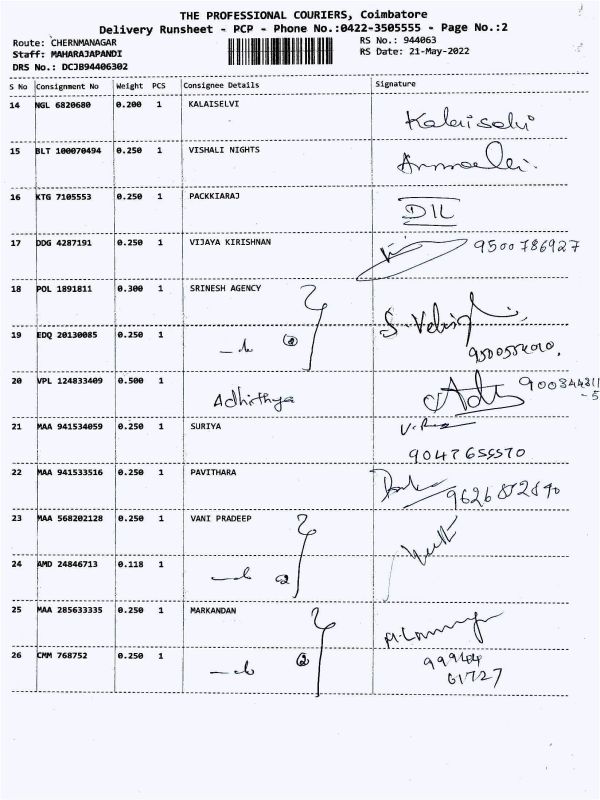 THE PROFESSIONAL COURIERS, Coimbatore
Delivery Runsheet - PCP - Phone No.:0422-3505555 - Page No.:2
Route: CHERNMANAGAR RS No.: 944063
Staff: MAHARAJAPANDI RS Date: 21-May-2022
DRS No.: DCJB94406302
S No Consignment No Weight PCS Consignee Details Signature
14 NGL 6820680 0.200 1 KALAISELVI Kalaiselvi
15 BLT 100070494 0.250 1 VISHALI NIGHTS
16 KTG 7105553 0.250 1 PACKKIARAJ DIL
17 DDG 4287191 0.250 1 VIJAYA KIRISHNAN 9500786927
18 POL 1891811 0.300 1 SRINESH AGENCY
19 EDQ 20130085 0.250 1
20 VPL 124833409 0.500 1 Adhithya
21 MAA 941534059 0.250 1 SURIYA
9047655570
22 MAA 941533516 0.250 1 PAVITHARA
23 MAA 568202128 0.250 1 VANI PRADEEP
24 AMD 24846713 0.118 1 2
25 MAA 285633335 0.250 1 MARKANDAN
26 CMM 768752 0.250 1 2
61727